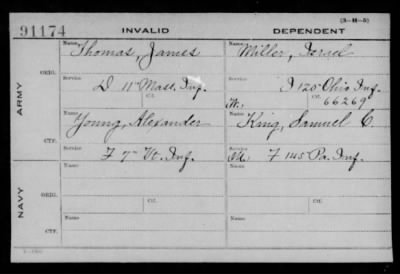 (3-11-5)
91174 INVALID DEPENDENT
ARMY
NAVY
ORIG.
Name Thomas, James
Name Miller, Israel
Service D 11" Mass. Inf.
Service I 120 Ohio Inf.
Ctf. 66269
CTF.
Name Young, Alexander
King, Samuel C.
F 7" Vt. Inf.
F 145 Pa. Inf.
ORIG.
Name
Name
Service
Ctf.
Service
Ctf.
CTF.
Name
Name